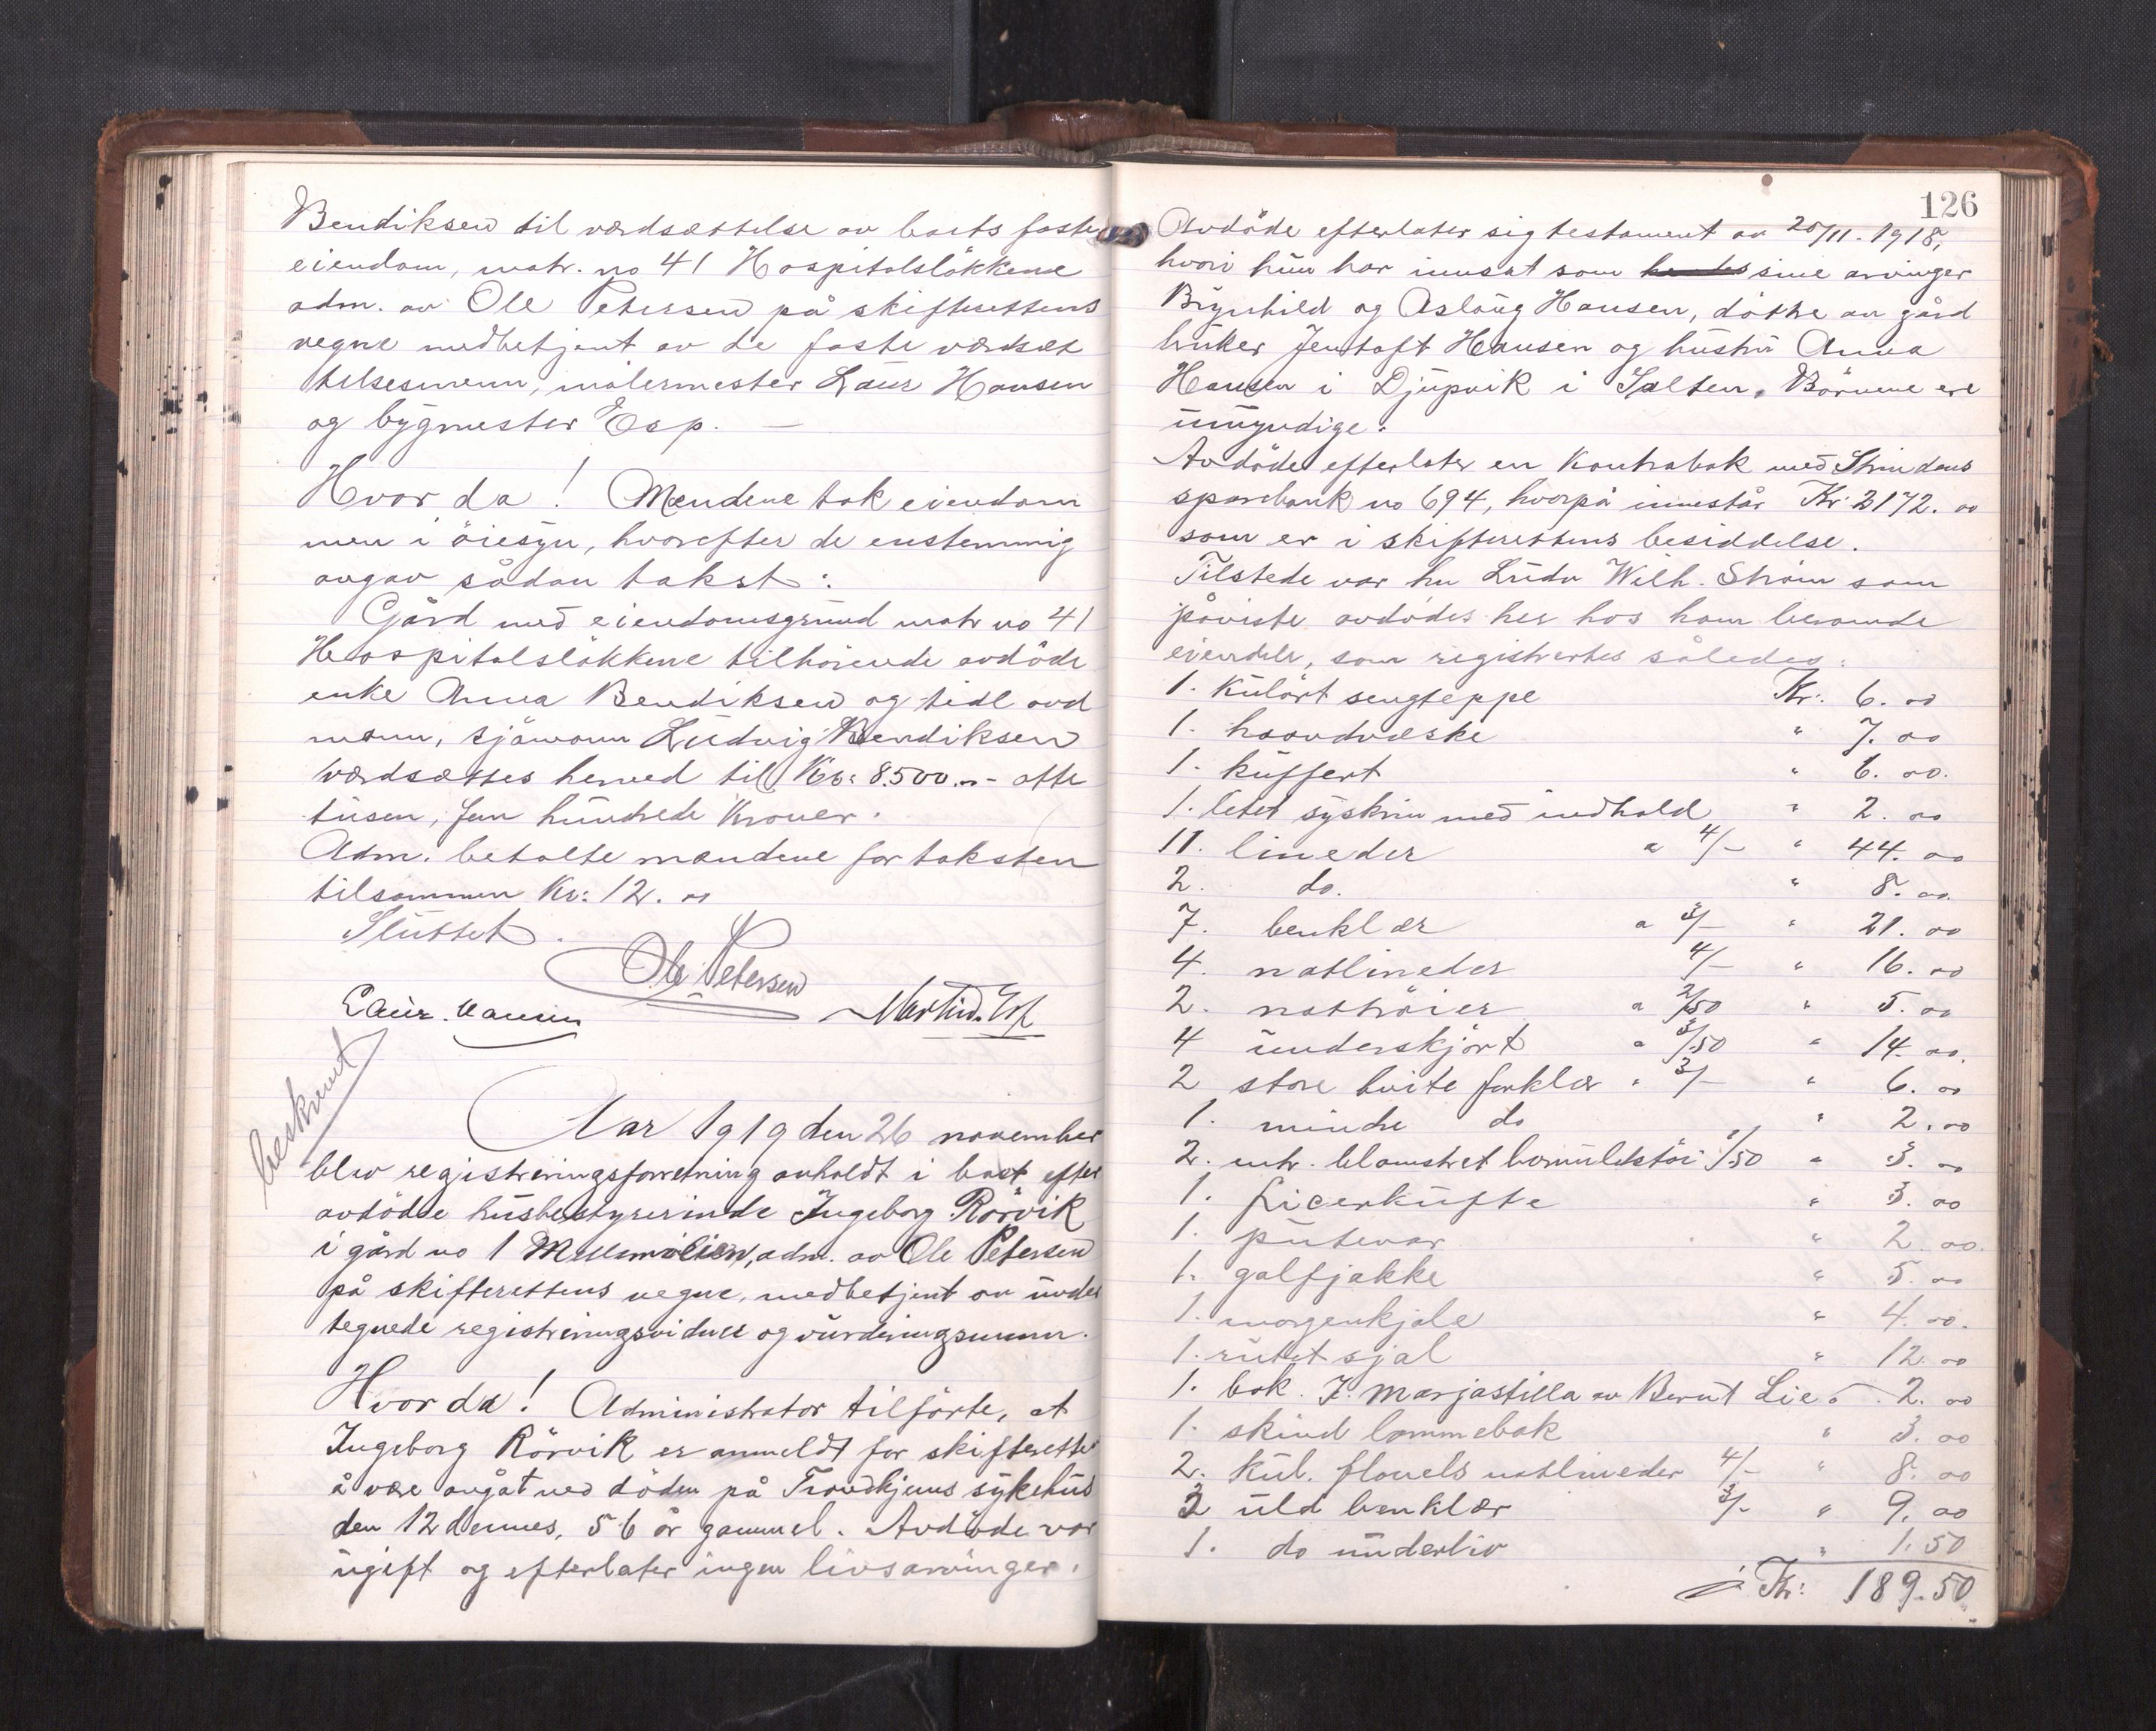 Bendiksen til værdsættelse av boets faste
eiendom, matr. no 41 Hospitalsløkkene
adm. av Ole Petersen på skifterettens
vegne medbetjent av de faste værdsæt
telsesmenn, malermester Laur Hansen
og bygmester Esp. —
Hvor da! Mændene tok eiendom
men i øiesyn, hvorefter de enstemmig
avgav sådan takst:
Gård med eiendomsgrund matr no 41
Hospitalsløkkene tilhørende avdøde
enke Anna Bendiksen og tidl avd
mann, sjømann Ludvig Bendiksen
værdsættes herved til Kr: 8.500.- otte
tusen, fem hundrede Kroner.
Adm. betalte mændene for taksten
tilsammen Kr: 12. 00
Sluttet.
Ole Petersen
Laur. Hansen Martin. Esp
beskrevet
Aar 1919 den 26 november
blev registreringsforretning avholdt i boet efter
avdøde husbestyrerinde Ingeborg Rörvik
i gård no 1 Mellemilien, adm. av Ole Petersen
på skifterettens vegne, medbetjent av under
tegnede registreringsvidner og vurderingsmenn.
Hvor da! Administrator tilførte, at
Ingeborg Rörvik er anmeldt for skifteretten
å være avgåt ved døden på Trondhjems sykehus
den 12 dennes, 56 år gammel. Avdøde var
ugift og efterlater ingen livsarvinger.
126
Avdøde efterlater sig testament av 20/11. 1918,
hvori hun har innsat som sine arvinger
Brynhild og Aslaug Hansen, døtre av gård
bruker Jentoft Hansen og hustru Anna
Hansen i Djupvik i Salten. Børnene ere
umyndige.
Avdøde efterlater en Kontrabok med Strindens
sparebank no 694, hvorpå innestår Kr 2172. 00
som er i skifterettens besiddelse.
Tilstede var hr Ludv Wilh. Strøm som
påviste avdødes her hos ham beroende
eiendeler, som registrertes således:
1. Kulørt sengteppe Kr: 6. 00
1. haandvæske " 7. 00
1. kuffert " 6. 00.
1. litet syskrin med indhold " 2. 00
11. lineder a 4/- " 44. 00
2. do. " 8. 00.
7. benklær a 3/- " 21. 00
4. natlineder 4/- " 16. 00
2. nattrøier a 2/50 " 5. 00
4 underskjørt a 3/50 " 14. 00.
2 store hvite forklær " 3/- " 6. 00
1. mindre do " 2. 00
2. mtr. blomstret bomuldstøi 1/50 " 3. 00
1. ficerkufte " 3. 00
1. putevar " 2. 00.
1. golfjakke " 5. 00
1. morgenkjole " 4. 00.
1. rutet sjal " 12. 00
1. bok. J. Marjastilla av Bernt Lie " 2. 00
1. skind lommebok " 3. 00
2. Kul. flonels natlineder 4/- " 8. 00
3 uld benklær 3/- " 9. 00
1. do underliv " 1. 50
Kr: 189.50